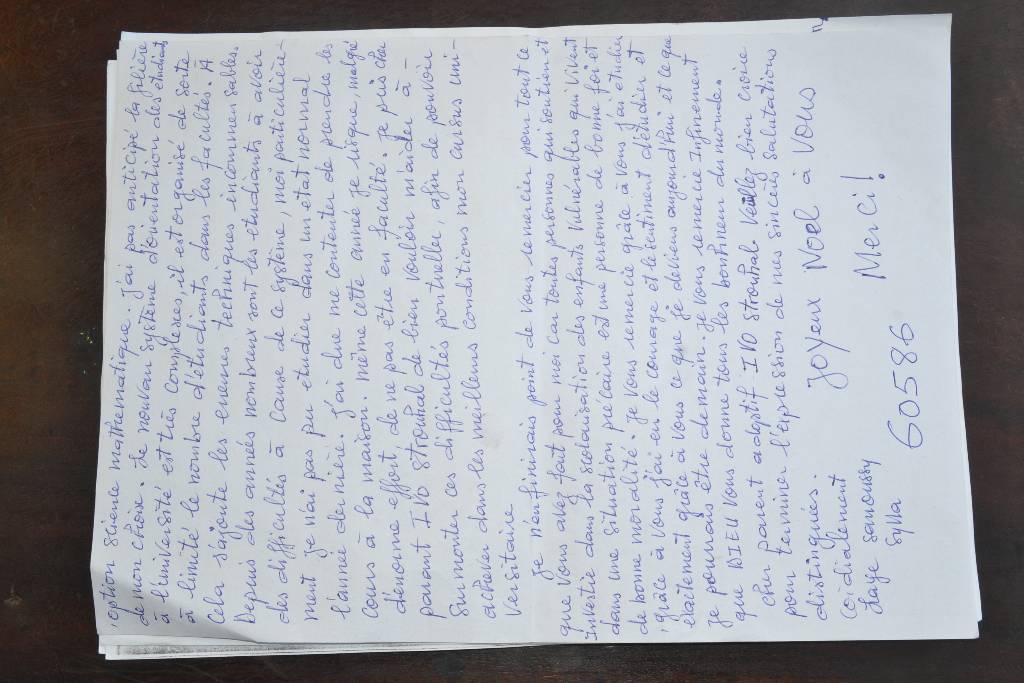 option science mathématique. j'ai pas anticipé la filière
de mon choix. Le nouveau système d'orientation des étudiants
à l'université est très complexes, il est organisé de sorte
à limité le nombre d'étudiants dans les facultés. A
Cela s'ajoute les ennuies techniques incommensables.
Depuis des années nombreux sont les etudiants à avoir
des difficultés à cause de ce système, moi particulière-
ment je n'ai pas pu étudier dans un état normal
l'année dernière. j'ai due me contenter de prendre les
Cours à la maison. même cette année je risque, malgré
d'énorme effort, de ne pas être en faculté. je puis cher
parant IVO Stroubal de bien vouloir m'aider à
Surmonter ces difficultés pontueller, afin de pouvoir
achever dans les meilleurs conditions mon cursus uni-
Versitaire
je n'en finirais point de vous remercier pour tout ce
que Vous avez fait pour moi car toutes personnes qui soutien et
Investie dans la scolarisation des enfants Vulnérables qui vivent
dans une situation précaire est une personne de bonne foi et
de bonne moralité. je vous remercie grâce à vous j'ai étudier
, grâce à vous j'ai eu le courage et le sentiment d'étudier et
exactement grâce à vous ce que je deviens aujourd'hui et ce que
je pourrais être demain. je vous remercie Infiniment
que DIEU Vous donne tous les bonheur du monde.
cher parent adoptif IVO Stroubal. Veuillez bien croire
pour terminer l'expression de mes sincères salutations
distinguées.
Cordialement
Laye Sanoussy
Sylla
JOYEUX NOEL à VOUS
Merci!
60586